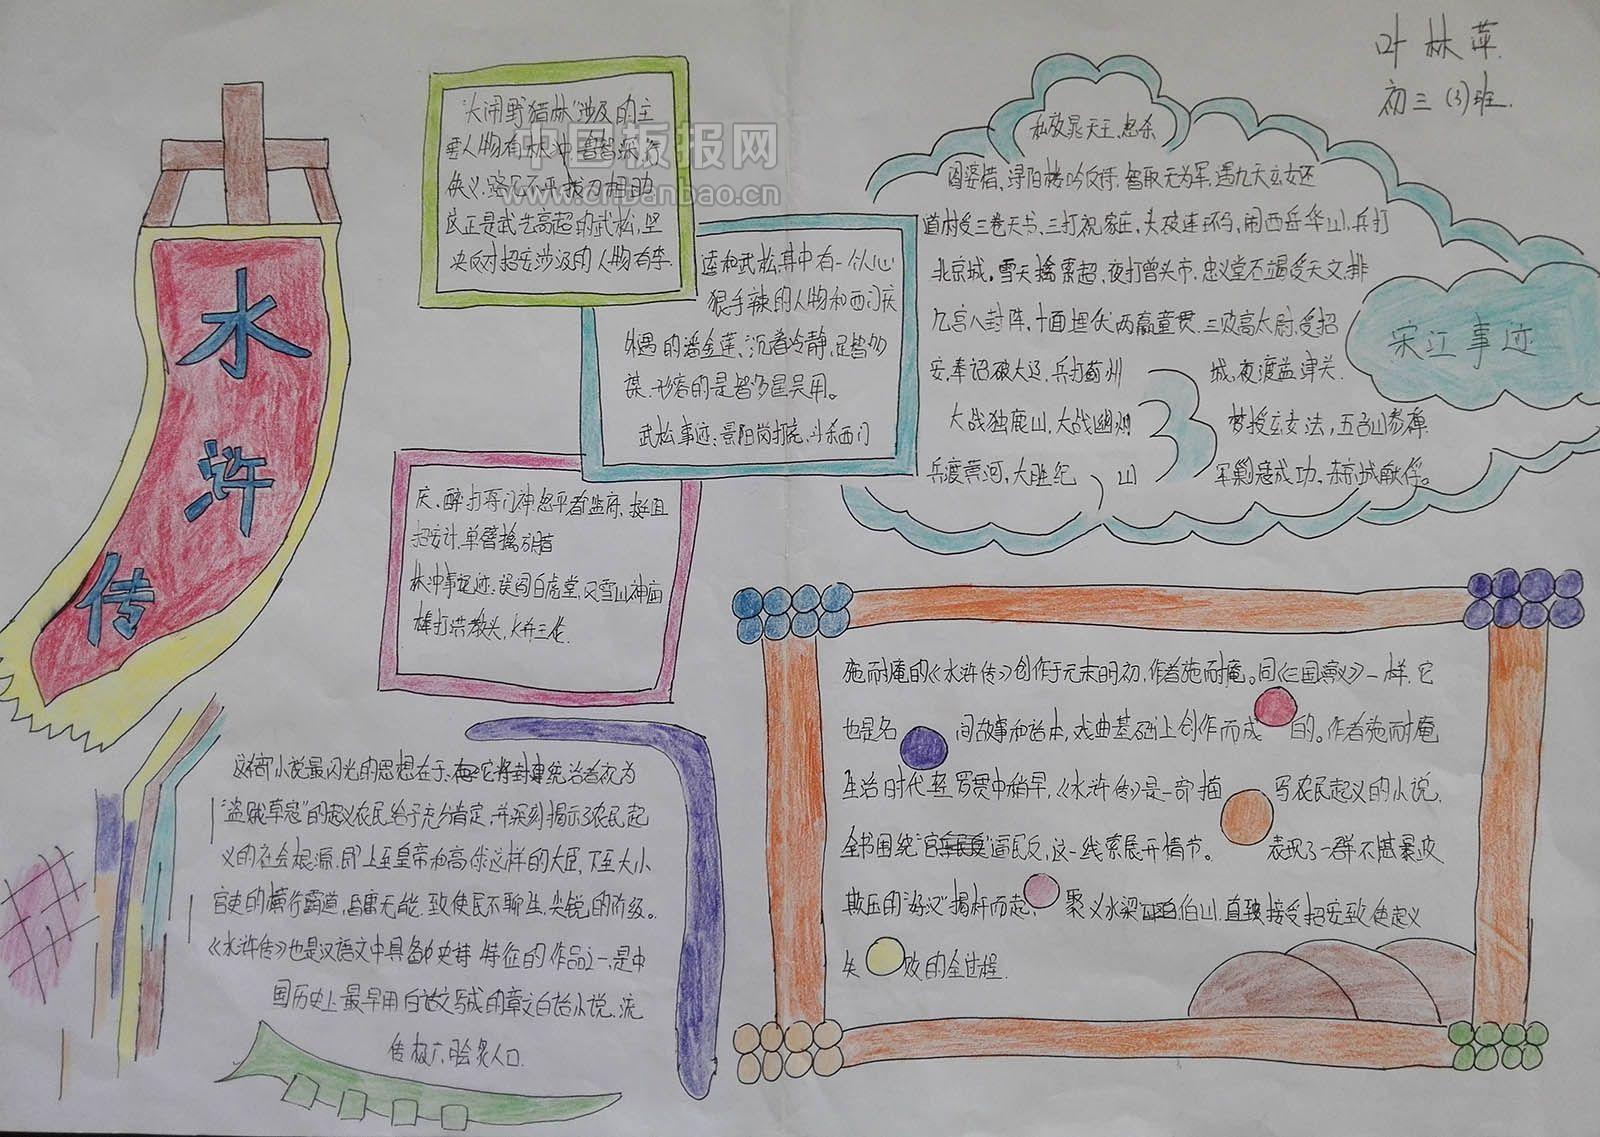 叶林萍
初三(3)班
水浒传
"大闹野猪林"涉及的主
要人物有林冲、鲁智深,行
侠义、路见不平拔刀相助
反正是武艺高超的武松,坚
决反对招安涉及的人物有李
逵和武松,其中有一个心
狠手辣的人物和西门庆
外遇的潘金莲、沉着冷静,足智多
谋,形容的是智多星吴用。
武松事迹、景阳岗打虎、斗杀西门
庆、醉打蒋门神
招安计,单臂擒方腊
林冲事迹、误闯白虎堂,风雪山神庙
棒打洪教头,火并王伦
私放晁天王、怒杀
阎婆惜、浔阳楼吟反诗,智取无为军,遇九天玄女还
道村受三卷天书、三打祝家庄,大破连环马,闹西岳华山,兵打
北京城。雪天擒索超,夜打曾头市,忠义堂石碣受天文,排
九宫八卦阵,十面埋伏两赢童贯,三败高太尉,受招
安,奉诏破大辽,兵打蓟州城,夜渡益津关.
大战独鹿山,大战幽州 梦授玄女法,五台山参禅
兵渡黄河,大胜纪山 军剿寇成功,东京城献俘。
宋江事迹
中国板报网
www.chbanbao.cn
施而庵的《水浒传》创作于元末明初,作者施而庵。同《三国演义》一样,它
也是名间故事和话本,戏曲基础上创作而成的。作者施而庵
生活时代轻罗贯中稍早,《水浒传》是一部描写农民起义的小说,
全书围绕"官逼民反,这一线索展开情节。表现了一群不堪暴政
欺压的"好汉"揭杆而起,聚义水梁泊山,直接接受招安致使起义
失败的全过程.
这部小说最闪光的思想在于,它将封建统治者视为
"盗贼草寇"的起义农民给予充分肯定,并深刻揭示了农民起
义的社会根源,即上至皇帝和高俅这样的大臣,下至大小
官吏的横行霸道,昏庸无能,致使民不聊生,尖锐的阶级。
《水浒传》也是汉语文中具备史诗特征的作品之一,是中
国历史上最早用白话文写成的章文白话小说,流
传极广,脍炙人口.